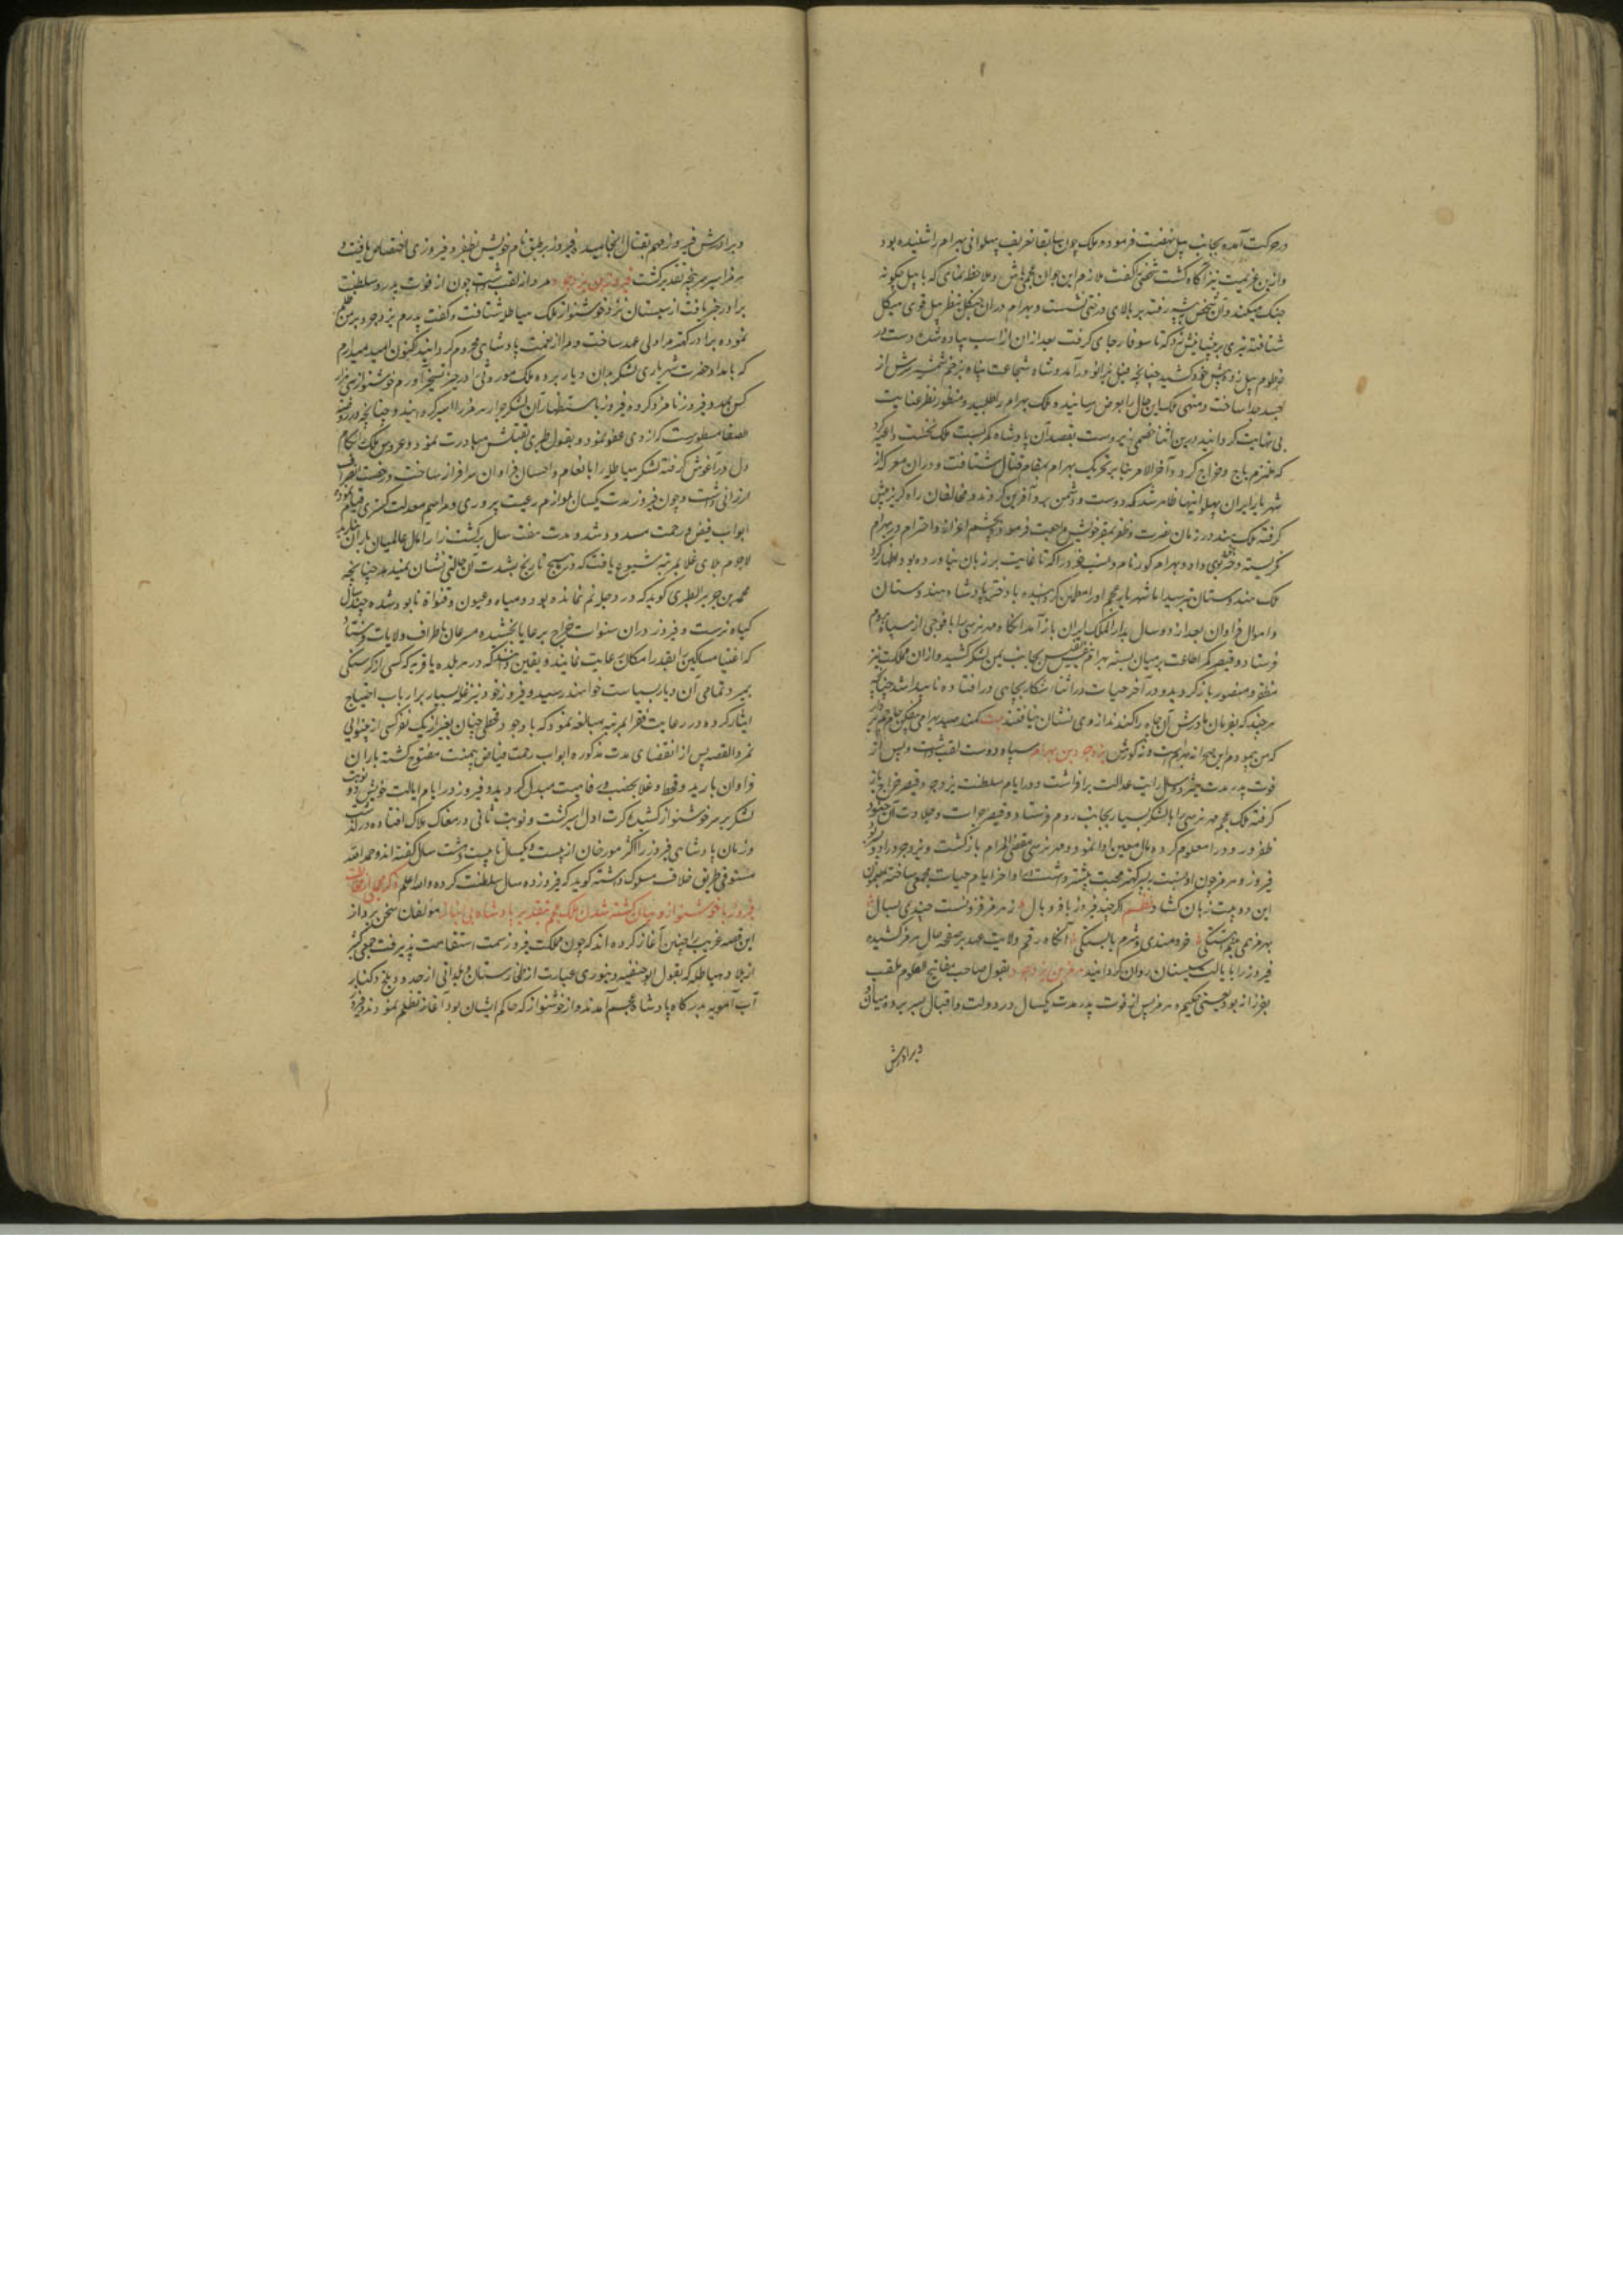 در حرکت آمده بجانب پیل نهضت فرمود و ملک چون سابقا تعریف پهلوانی بهرام را شنیده بود
و ازین عزیمت نیز آگاه گشت شخصی را گفت ملازم این جوان عجمی باش و ملاحظه نمای که با پیل چگونه
جنگ میکند و آن شخص پیش رفته بر بالای درختی نشست و بهرام در آن جنگل بنظر پیل قوی هیکل
شتافته تیری بر پیشانیش زد که تا سوفار جای گرفت بعد از آن از اسب پیاده شده دست در
خرطوم پیل زد و پیش خود کشید چنانچه فیل بزانو درآمد و شاه شجاعت پناه بزخم شمشیر سرش از
جسد جدا ساخت و منهی ملک این حال را بعرض رسانیده ملک بهرام را طلبید و منظور نظر عنایت
بی نهایت گردانید درین اثنا خصمی زبردست بقصد آن پادشاه کمر بست ملک نخست داعیه کرد
که ملتزم باج و خراج گردد و آخر الامر بنا بر تحریک بهرام بمقام قتال شتافت و در آن معرکه از
شهریار ایران پهلوانیها ظاهر شد که دوست و دشمن برو آفرین کردند و مخالفان راه گریز پیش
گرفته ملک هند در زمان نصرت و ظفر بمقر خویش مراجعت فرمود و بچشم اعزاز و احترام در بهرام
نگریسته دختر بوی داد و بهرام گور نام و نسب خود را که تا غایت بر زبان نیاورده بود اظهار کرد
ملک هندوستان بترسید اما شهریار عجم او را مطمئن گردانیده با دختر پادشاه هندوستان
و اموال فراوان بعد از دو سال بدار الملک ایران باز آمد آنگاه مهرنرسی را با فوجی از سپاه بروم
فرستاد و قیصر کمر اطاعت بر میان بسته بهرام بنفس نفیس بجانب یمن لشکر کشید و از آن مملکت نیز
مظفر و منصور باز گردید و در آخر حیات در اثناء شکار بچاهی در افتاده ناپیدا شد چنانچه
هرچند که بفرمان مادرش آن چاه را کندند از وی نشان نیافتند بیت کمند صید بهرامی بیفکن جام جم بردار
که من پیمودم این صحرا نه بهرامست و نه گورش یزدجرد بن بهرام سپاه دوست لقب داشت و پس از
فوت پدر مدت هژده سال رایت عدالت برافراشت و در ایام سلطنت یزدجرد قیصر خراج باز
گرفته ملک عجم مهرنرسی را با لشکر بسیار بجانب روم فرستاد و قیصر جرات و جلادت آن جنود
ظفر ورود را معلوم کرده مال معین ادا نمود و مهرنرسی مقضی المرام بازگشت و یزدجرد را دو پسر بود
فیروز و هرمز چون او نسبت بپسر کهتر محبت بیشتر داشت در اواخر ایام حیات جمعی ساخته بمضمون
این دو بیت زبان گشاد نظم اگر چند فیروز با فر و یال ز هرمز فزونست چندی بسال
بهرمز همی بینم آهستگی خردمندی و شرم بایستگی آنگاه رقم ولایت عهد بر صفحه حال هرمز کشیده
فیروز را بایالت سیستان روان گردانید هرمز بن یزدجرد بقول صاحب مفاتیح العلوم ملقب
بفرزانه بود یعنی حکیم و هرمز پس از فوت پدر مدت یکسال در دولت و اقبال بسر برده میان او
و برادرش
و برادرش فیروز مهم بقتال انجامید و فیروز بر طبق نام خویش بظفر و فیروزی اختصاص یافت و
هرمز اسیر سرپنجه تقدیر گشت فیروز بن یزدجرد مردانه لقب داشت چون از فوت پدر و سلطنت
برادر خبر یافت از سیستان نزد خوشنواز ملک هیاطله شتافت و گفت پدرم یزدجرد بر من ظلم
نموده برادر کهتر مرا ولی عهد ساخت و مرا از نعمت پادشاهی محروم گردانید اکنون امید میدارم
که بامداد حضرت شهریاری لشکر بدان دیار برده ملک موروثی را در حیز تسخیر آورم خوشنواز سی هزار
کس بمدد فیروز نامزد کرده فیروز باستظهار آن لشکر جرار هرمز را اسیر گردانید و چنانچه در روضة
الصفا مسطورست گناه وی عفو نمود و بقول طبری بقتلش مبادرت نمود و عروس ملک را بکام
دل در آغوش گرفته لشکر هیاطله را بانعام و احسان فراوان سرافراز ساخت و رخصت انصراف
ارزانی داشت و چون فیروز مدت یکسال بلوازم رعیت پروری و مراسم معدلت گستری قیام نمود
ابواب فیض و رحمت مسدود شد و مدت هفت سال بر کشت زار آمال عالمیان باران نبارید
لاجرم بلای غلا بمرتبه شیوع یافت که در هیچ تاریخ بشدت آن حالتی نشان نمیدهد چنانچه
محمد بن جریر الطبری گوید که در دجله نم نمانده بود و میاه و عیون و قنوات نابود شده چند سال
گیاه نرست و فیروز در آن سنوات خراج برعایا بخشیده مسرعان باطراف ولایات فرستاد
که اغنیا مساکین را بقدر امکان رعایت نمایند و یقین دانند که در هر بلده یا قریه که کسی از گرسنگی
بمیرد تمامی آن دیار بسیاست خواهند رسید و فیروز خود نیز غله بسیار بر ارباب احتیاج
ایثار کرده در رعایت فقرا بمرتبه مبالغه نمود که با وجود قحطی چنان بغیر از یک نفر کسی از بینوایی
نمرد القصه پس از انقضای مدت مذکوره ابواب رحمت فیاض بیمنت مفتوح گشته باران
فراوان بارید و قحط و غلا بخصب و رفاهیت مبدل گردید و فیروز در ایام ایالت خویش دو نوبت
لشکر بر سر خوشنواز کشید کرت اول اسیر گشت و نوبت ثانی در مغاک هلاک افتاده درگذشت
و زمان پادشاهی فیروز را اکثر مورخان از بیست و یکسال تا بیست و هشت سال گفته‌اند و حمد الله
مستوفی طریق خلاف مسلوک داشته گوید که فیروز ده سال سلطنت کرده و الله اعلم ذکر مجملی از محاربات
فیروز با خوشنواز و بیان کشته شدن ملک عجم بتقدیر پادشاه بی نیاز مولفان سخن پرداز
این قصه غریب را چنین آغاز کرده‌اند که چون مملکت فیروز سمت استقامت پذیرفت جمعی کثیر
از بلاد هیاطله که بقول ابو حنیفه دینوری عبارت از طخارستان و بلدانی از حدود بلخ و کنار
آب آمویه بدرگاه پادشاه عجم آمدند و از خوشنواز که حاکم ایشان بود آغاز تظلم نمودند و فیروز